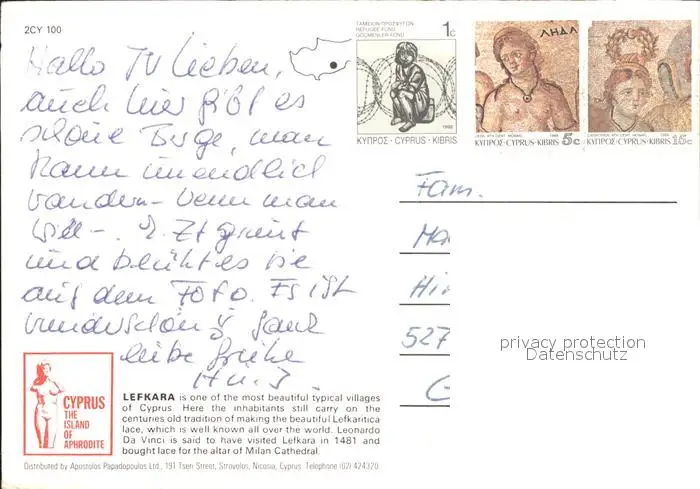 2CY 100
Hallo Ihr Lieben,
auch hier gibt es
schöne Berge, man
kann unendlich
wandern - wenn man
will -. Z. Zt grünt
und blüht es wie
auf dem Foto. Es ist
wunderschön ganz
liebe Grüße
ΤΑΜΕΙΟΝ ΠΡΟΣΦΥΓΩΝ
REFUGEE FUND
GÖÇMENLER FONU
1c
1988
ΚΥΠΡΟΣ·CYPRUS·KIBRIS
ΛΗΔΑ
1988
ΚΥΠΡΟΣ·CYPRUS·KIBRIS 5c
ΚΥΠΡΟΣ·CYPRUS·KIBRIS 15c
Fam.
Hi
527
G
privacy protection
Datenschutz
CYPRUS
THE
ISLAND
OF
APHRODITE
LEFKARA is one of the most beautiful typical villages
of Cyprus. Here the inhabitants still carry on the
centuries old tradition of making the beautiful Lefkaritica
lace, which is well known all over the world. Leonardo
Da Vinci is said to have visited Lefkara in 1481 and
bought lace for the altar of Milan Cathedral.
Distributed by Apostolos Papadopoulos Ltd., 191 Tseri Street, Strovolos, Nicosia, Cyprus Telephone (02) 424320.